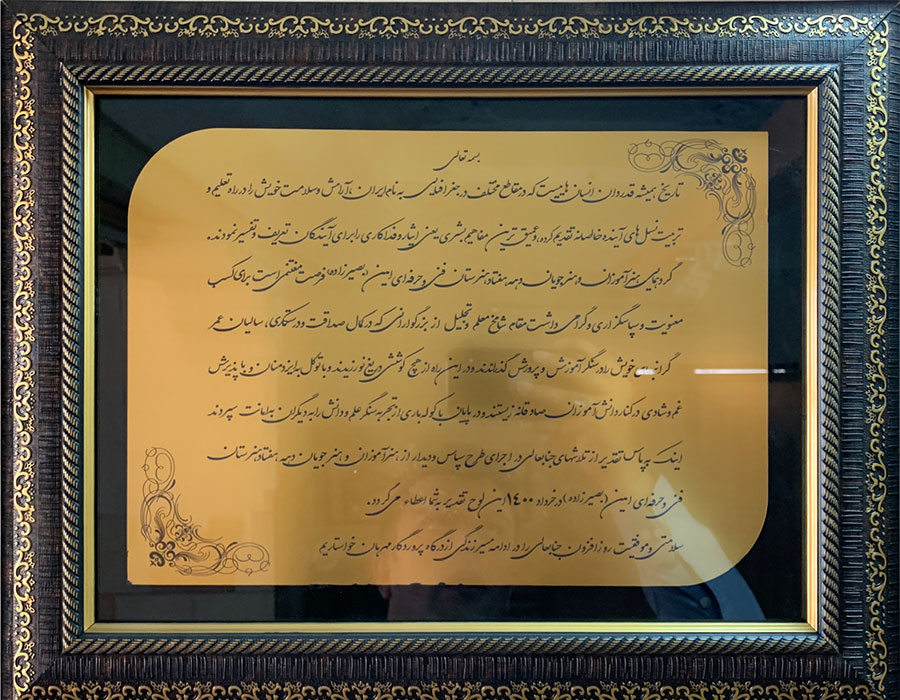 بسمه تعالی
تاریخ همیشه قدردان انسان هاییست که در مقاطع مختلف در جغرافیایی به نام ایران، آرامش و سلامت خویش را در راه تعلیم و
تربیت نسل های آینده خالصانه تقدیم کرده، و عمیق ترین مفاهیم بشری یعنی ایثار و فداکاری را برای آیندگان تعریف و تفسیر نمودند.
گردهمایی هنرآموزان و هنرجویان دهه هفتاد هنرستان فنی و حرفه ای امین (بصیرزاده) فرصت مغتنمی است برای کسب
معنویت و سپاسگزاری و گرامی داشت مقام شامخ معلم و تجلیل از بزرگوارانی که در کمال صداقت و درستکاری، سالیان عمر
گرانبهای خویش را در سنگر آموزش و پرورش گذراندند و در این راه از هیچ کوششی دریغ نورزیدند و با توکل به ایزد منان و با پذیرش
غم و شادی در کنار دانش آموزان صادقانه زیستند و در پایان با کوله باری از تجربه سنگر علم و دانش را به دیگران به امانت سپردند
اینک به پاس تقدیر از تلاشهای جنابعالی در اجرای طرح سپاس و دیدار از هنرآموزان و هنرجویان دهه هفتاد هنرستان
فنی و حرفه ای امین (بصیرزاده) در خرداد ۱۴۰۰ این لوح تقدیر به شما اعطاء می گردد.
سلامتی و موفقیت روز افزون جنابعالی را در ادامه مسیر زندگی از درگاه پروردگار مهربان خواستاریم